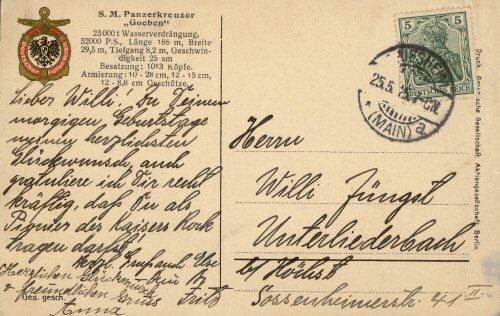 S. M. Panzerkreuzer
„Goeben"
23000 t Wasserverdrängung,
52000 P.S., Länge 186 m, Breite
29,5 m, Tiefgang 8,2 m, Geschwin-
digkeit 25 sm
Besatzung: 1013 Köpfe.
Armierung: 10 - 28 cm, 12 - 15 cm,
12 - 8,8 cm Geschütze.
Deutscher
Lieber Willi! Zu Deinem
morgigen Geburtstage
meinen herzlichsten
Glückwunsch, auch
gratuliere ich Dir recht
kräftig, daß Du als
Pionier des Kaisers Rock
tragen darfst.
Herzl. Gruß auch
Fritz
Herzlichen Glückwunsch
& freundlichen Gruß
Anna
Ges. gesch.
5 5
DEUTSCHES REICH
25.5.
(MAIN)
Herrn
Willi Jüngst
Unterliederbach
b/ Höchst
Sossenheimerstr. 41 II.
Gesellschaft, Aktiengesellschaft, Berlin.